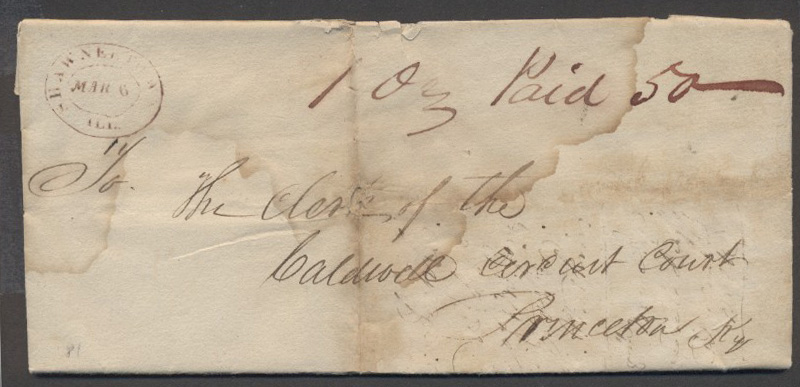 SHAWNEETOWN
MAR 6
ILL.
1 Oz Paid 50
To. The Clerk of the
Caldwell circuit Court
Princeton Ky